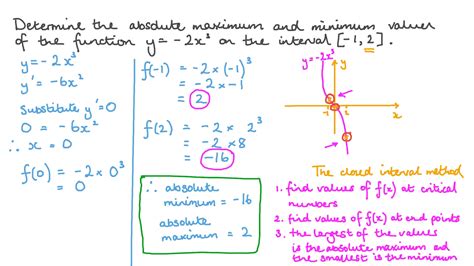 Determine the absolute maximum and minimum values
of the function y = -2x³ on the interval [-1, 2].
y = -2x³
y' = -6x²
Substitute y' = 0
0 = -6x²
∴ x = 0
f(0) = -2 × 0³
= 0
f(-1) = -2 × (-1)³
= -2 × -1
= 2
f(2) = -2 × 2³
= -2 × 8
= -16
∴ absolute
minimum = -16
absolute
maximum = 2
y = -2x³
y
-1
2
x
The closed interval method
1. find values of f(x) at critical
numbers
2. find values of f(x) at end points
3. the largest of the values
is the absolute maximum and
the smallest is the minimum